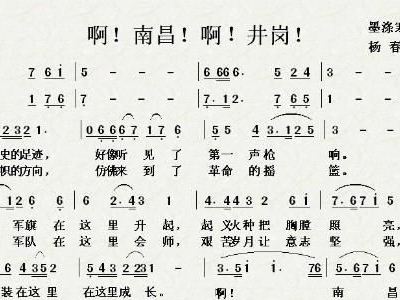 啊！南昌！啊！井岗！
墨涤
杨 春
7 6 i 5 - - - 6 666. 5 2 4 3 -
1 7 6 7 - - - 7. 12. 7 6 5 1 -
2321. 0 6 6 6 7 1 7 6 5 5 4 3. 1 2 5 3 - -
史的足迹， 好像听 见 了 第 一 声 枪 响。
的方向， 仿佛来 到 了 革 命 的 摇 篮。
1 2 6 6 2. 4 3 1 2 1 2 3 4 6 7. 6 7 1 5 -
军 旗 在 这 里 升 起， 起 义火 种 把 胸 膛 照 亮，
军 队 在 这 里 会 师， 艰 苦岁 月 让 意志 坚 强，
6 4352 5 4 3 2231 - 3. 5 i i. 76 5. 6 7 6 i
装在 这 里 在这里成 长。 啊！ 南 昌